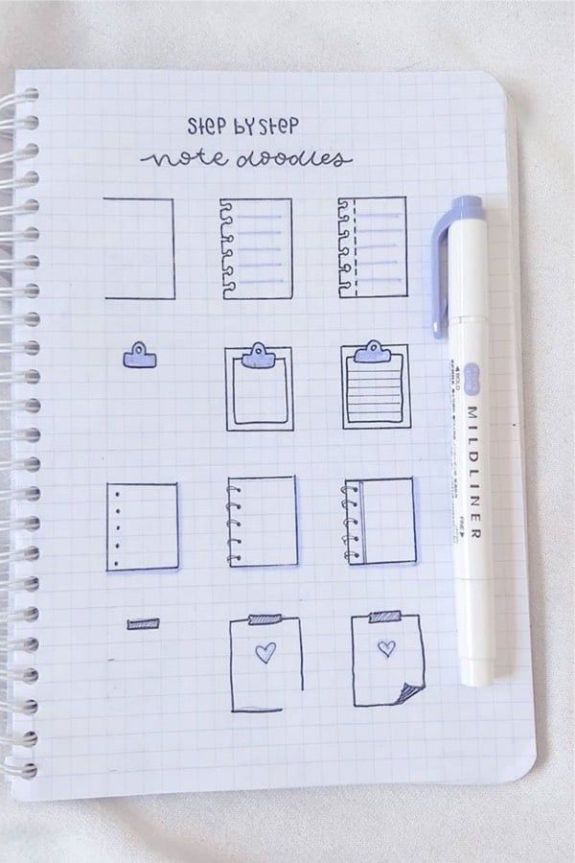 step by step
note doodles
MILDLINER